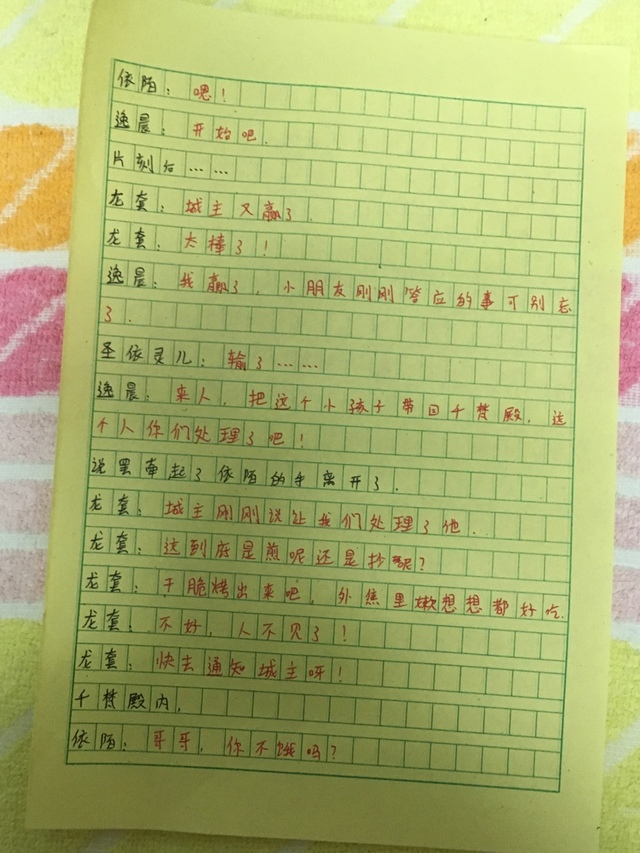 依陌：嗯！
逸晨：开始吧.
片刻后……
龙套：城主又赢了.
龙套：太棒了！
逸晨：我赢了，小朋友刚刚答应的事可别忘
了.
圣依灵儿：输了……
逸晨：来人，把这个小孩子带回千梵殿，这
个人你们处理了吧！
说罢牵起了依陌的手离开了.
龙套：城主刚刚说让我们处理了他.
龙套：这到底是煎呢还是抄呢？
龙套：干脆烤出来吧，外焦里嫩想想都好吃.
龙套：不好，人不见了！
龙套：快去通知城主呀！
千梵殿内，
依陌：哥哥，你不饿吗？